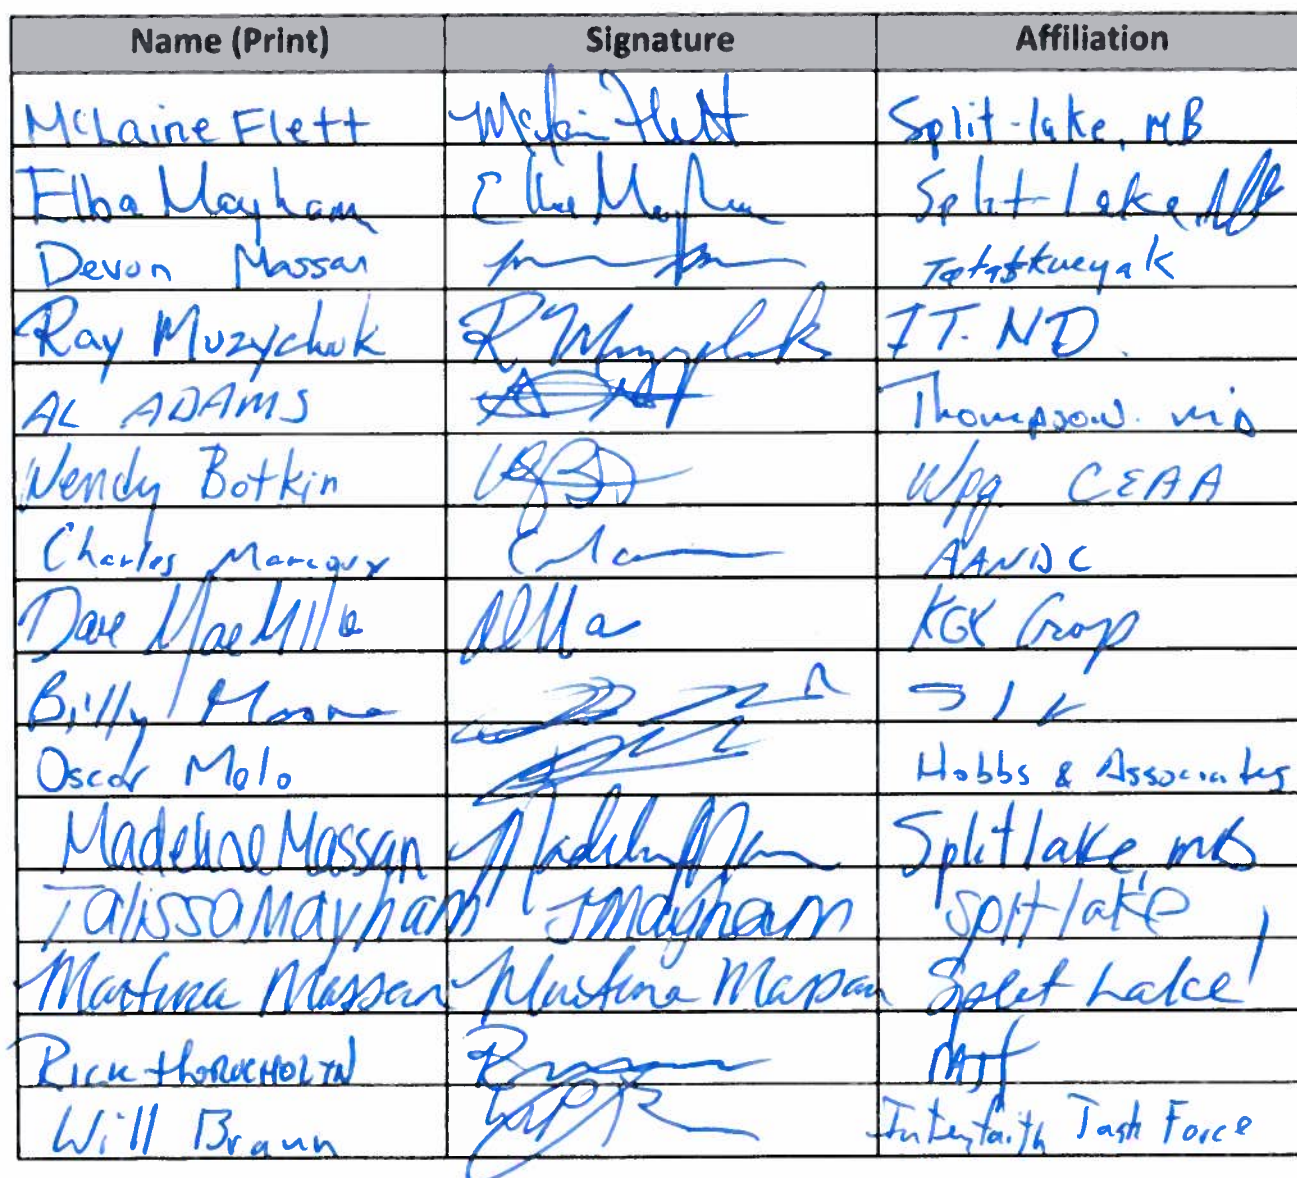 Name (Print) Signature Affiliation
McLaine Flett McLain Flett Split-lake, MB
Elba Mayham Split Lake
Devon Massan
Ray Muzychuk R Muzychuk I.T. N.D.
AL ADAMS Thompson
Wendy Botkin Wpg CEAA
Charles Marcoux AANDC
Dave KGK Group
Billy
Oscar Melo Hobbs & Associates
Madeline Massan Split lake, mb
Talissa Mayham TMayham Split lake
Martina Massan Martina Massan Split Lake
Rick
Will Braun Interfaith Task Force